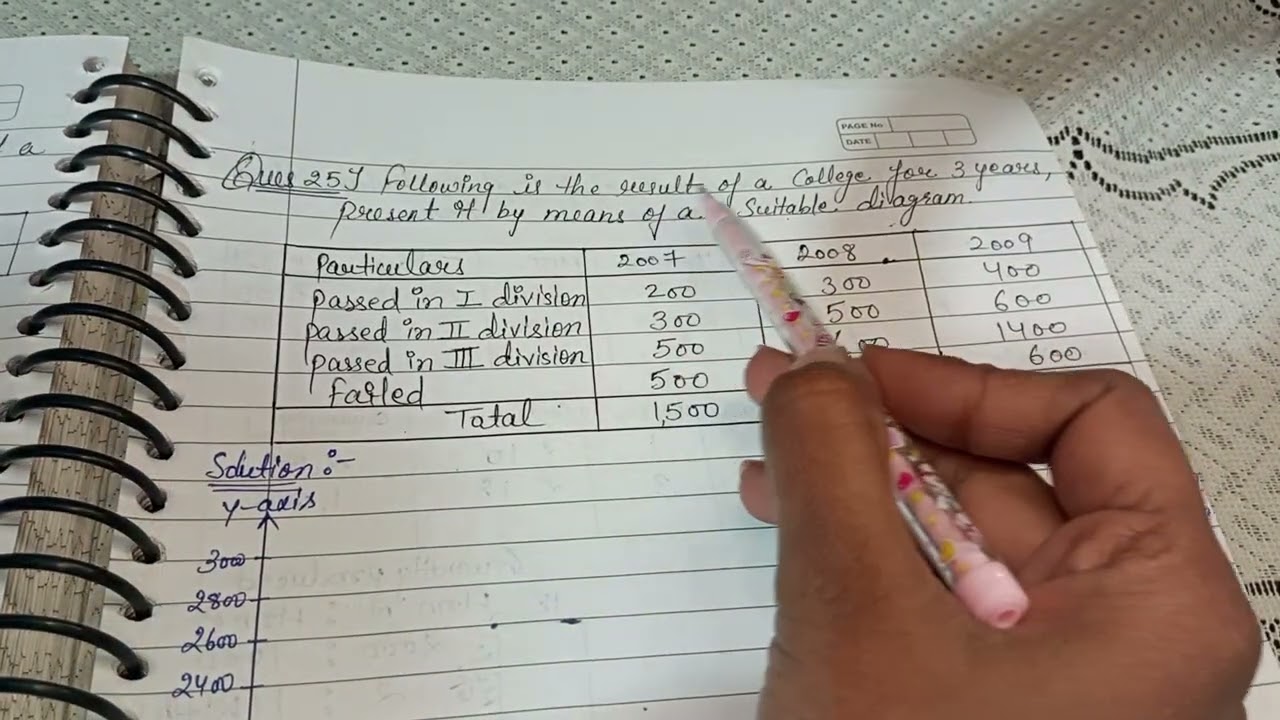 PAGE No
DATE
a
Ques 25] Following is the result of a College for 3 years,
present it by means of a Suitable diagram.
Particulars 2007 2008 2009
passed in I division 200 300 400
passed in II division 300 500 600
passed in III division 500 1400
Failed 500 600
Total 1,500
Solution :-
Y-axis
3000
2800
2600
2400